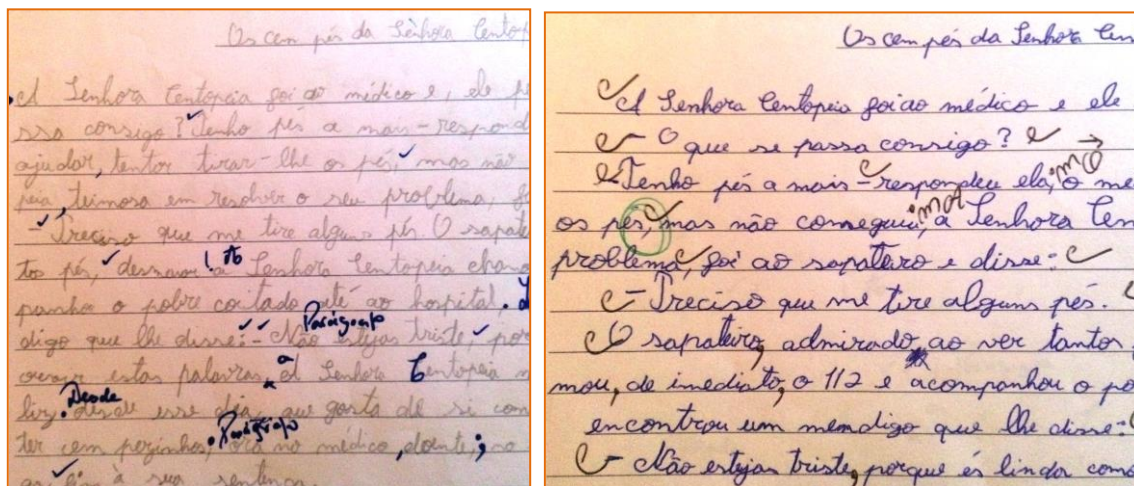 Os cem pés da Senhora Centop
A Senhora Centopeia foi ao médico e, ele pe
ssa consigo? Tenho pés a mais - respond
ajudar, tentou tirar-lhe os pés, mas não
peia, teimosa em resolver o seu problema, fo
- Preciso que me tire alguns pés O sapate
tos pés, desmaiou! a Senhora Centopeia cham
panhou o pobre coitado até ao hospital.
digo que lhe disse: - Não estejas triste, por
Parágrafo
ouvir estas palavras, a Senhora Centopeia
liz. desde esse dia, que gosta de si com
Desde
ter cem pezinhos, ora no médico, doente; no
Parágrafo
à sua sentença
Os cem pés da Senhora Cen
A Senhora Centopeia foi ao médico e ele
- O que se passa consigo?
- Tenho pés a mais - respondeu ela, o mé
os pés, mas não conseguiu, a Senhora Cen
problema, foi ao sapateiro e disse:
- Preciso que me tire alguns pés.
O sapateiro, admirado, ao ver tantos
mou, de imediato, o 112 e acompanhou o po
encontrou um mendigo que lhe disse:
- Não estejas triste, porque és linda como